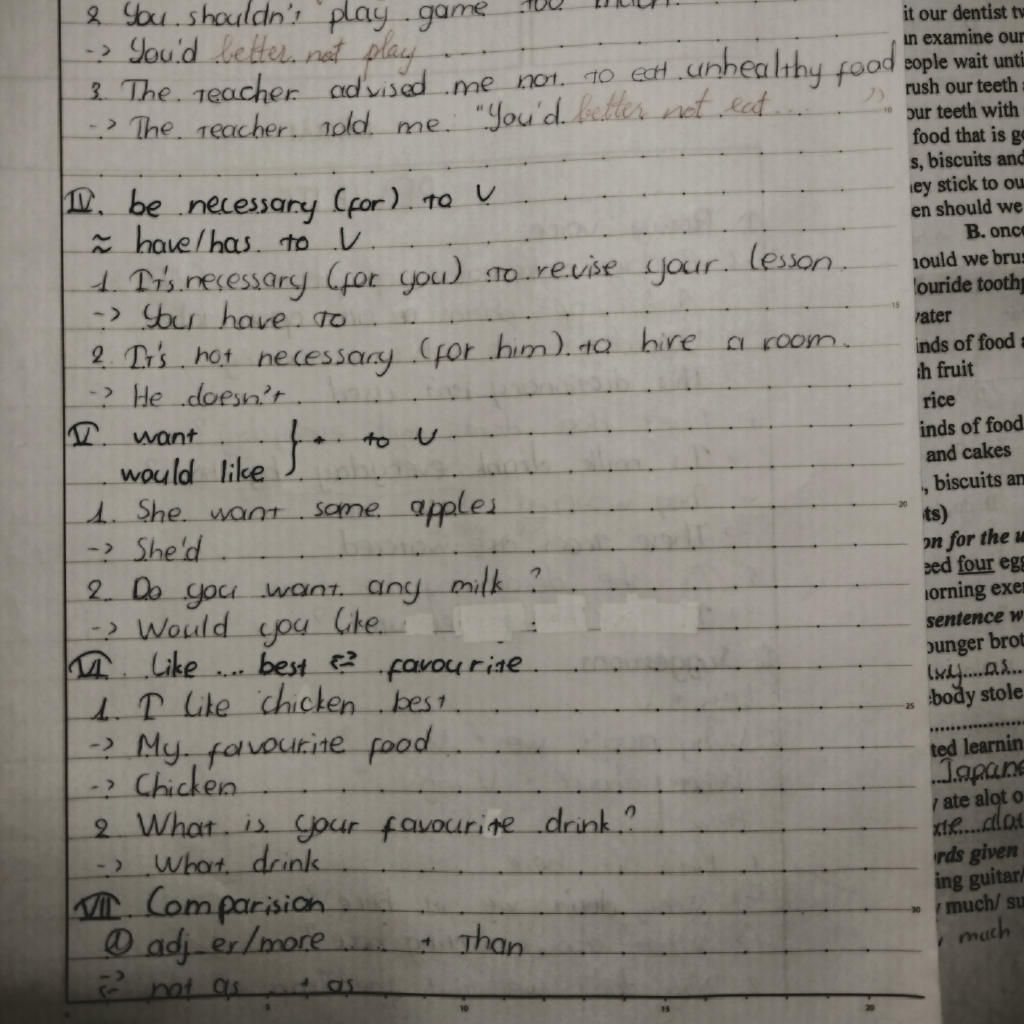 2. You shouldn't play game too much.
-> You'd better not play
3. The teacher advised me not to eat unhealthy food
-> The teacher told me "You'd better not eat ... "
IV. be necessary (for) to V
≈ have/has to V
1. It's necessary (for you) to revise your lesson.
-> You have to
2. It's not necessary (for him) to hire a room.
-> He doesn't
V. want
would like } + to V
1. She want some apples
-> She'd
2. Do you want any milk?
-> Would you like
VI. Like ... best <=> favourite
1. I like chicken best.
-> My favourite food
-> Chicken
2 What is your favourite drink?
-> What drink
VII. Comparision
① adj_er/more ... + Than
<=> not as ... + as
it our dentist tw
an examine our
eople wait unti
rush our teeth
our teeth with
food that is g
s, biscuits and
ey stick to ou
en should we
B. once
hould we brus
louride tooth
vater
inds of food a
h fruit
rice
inds of food
and cakes
, biscuits an
ts)
on for the u
eed four egg
orning exe
sentence w
ounger brot
as
body stole
ted learnin
Japane
ate alot o
alot
rds given
ing guitar/
much/ su
much
10
15
20
25
30
5
10
15
20